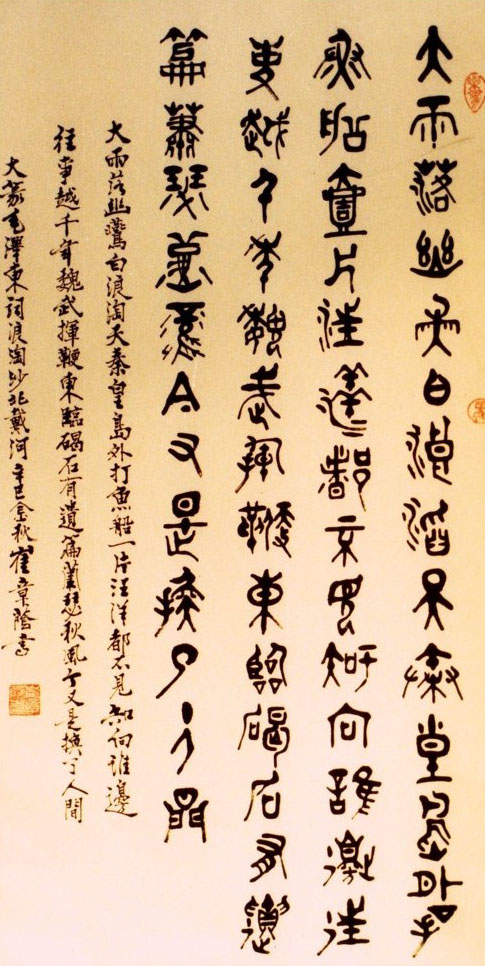 大雨落幽燕白浪滔天秦皇島外打
魚船壹片汪洋都不見知向誰邊往
事越千年魏武揮鞭東臨碣石有遺
篇蕭瑟秋風今又是換了人間
大雨落幽鷰白浪淘天秦皇島外打魚船一片汪洋都不見知向誰邊
往事越千年魏武揮鞭東臨碣石有遺篇蕭瑟秋風今又是換了人間
大篆毛澤東詞浪淘沙北戴河辛巳金秋崔章蔭書